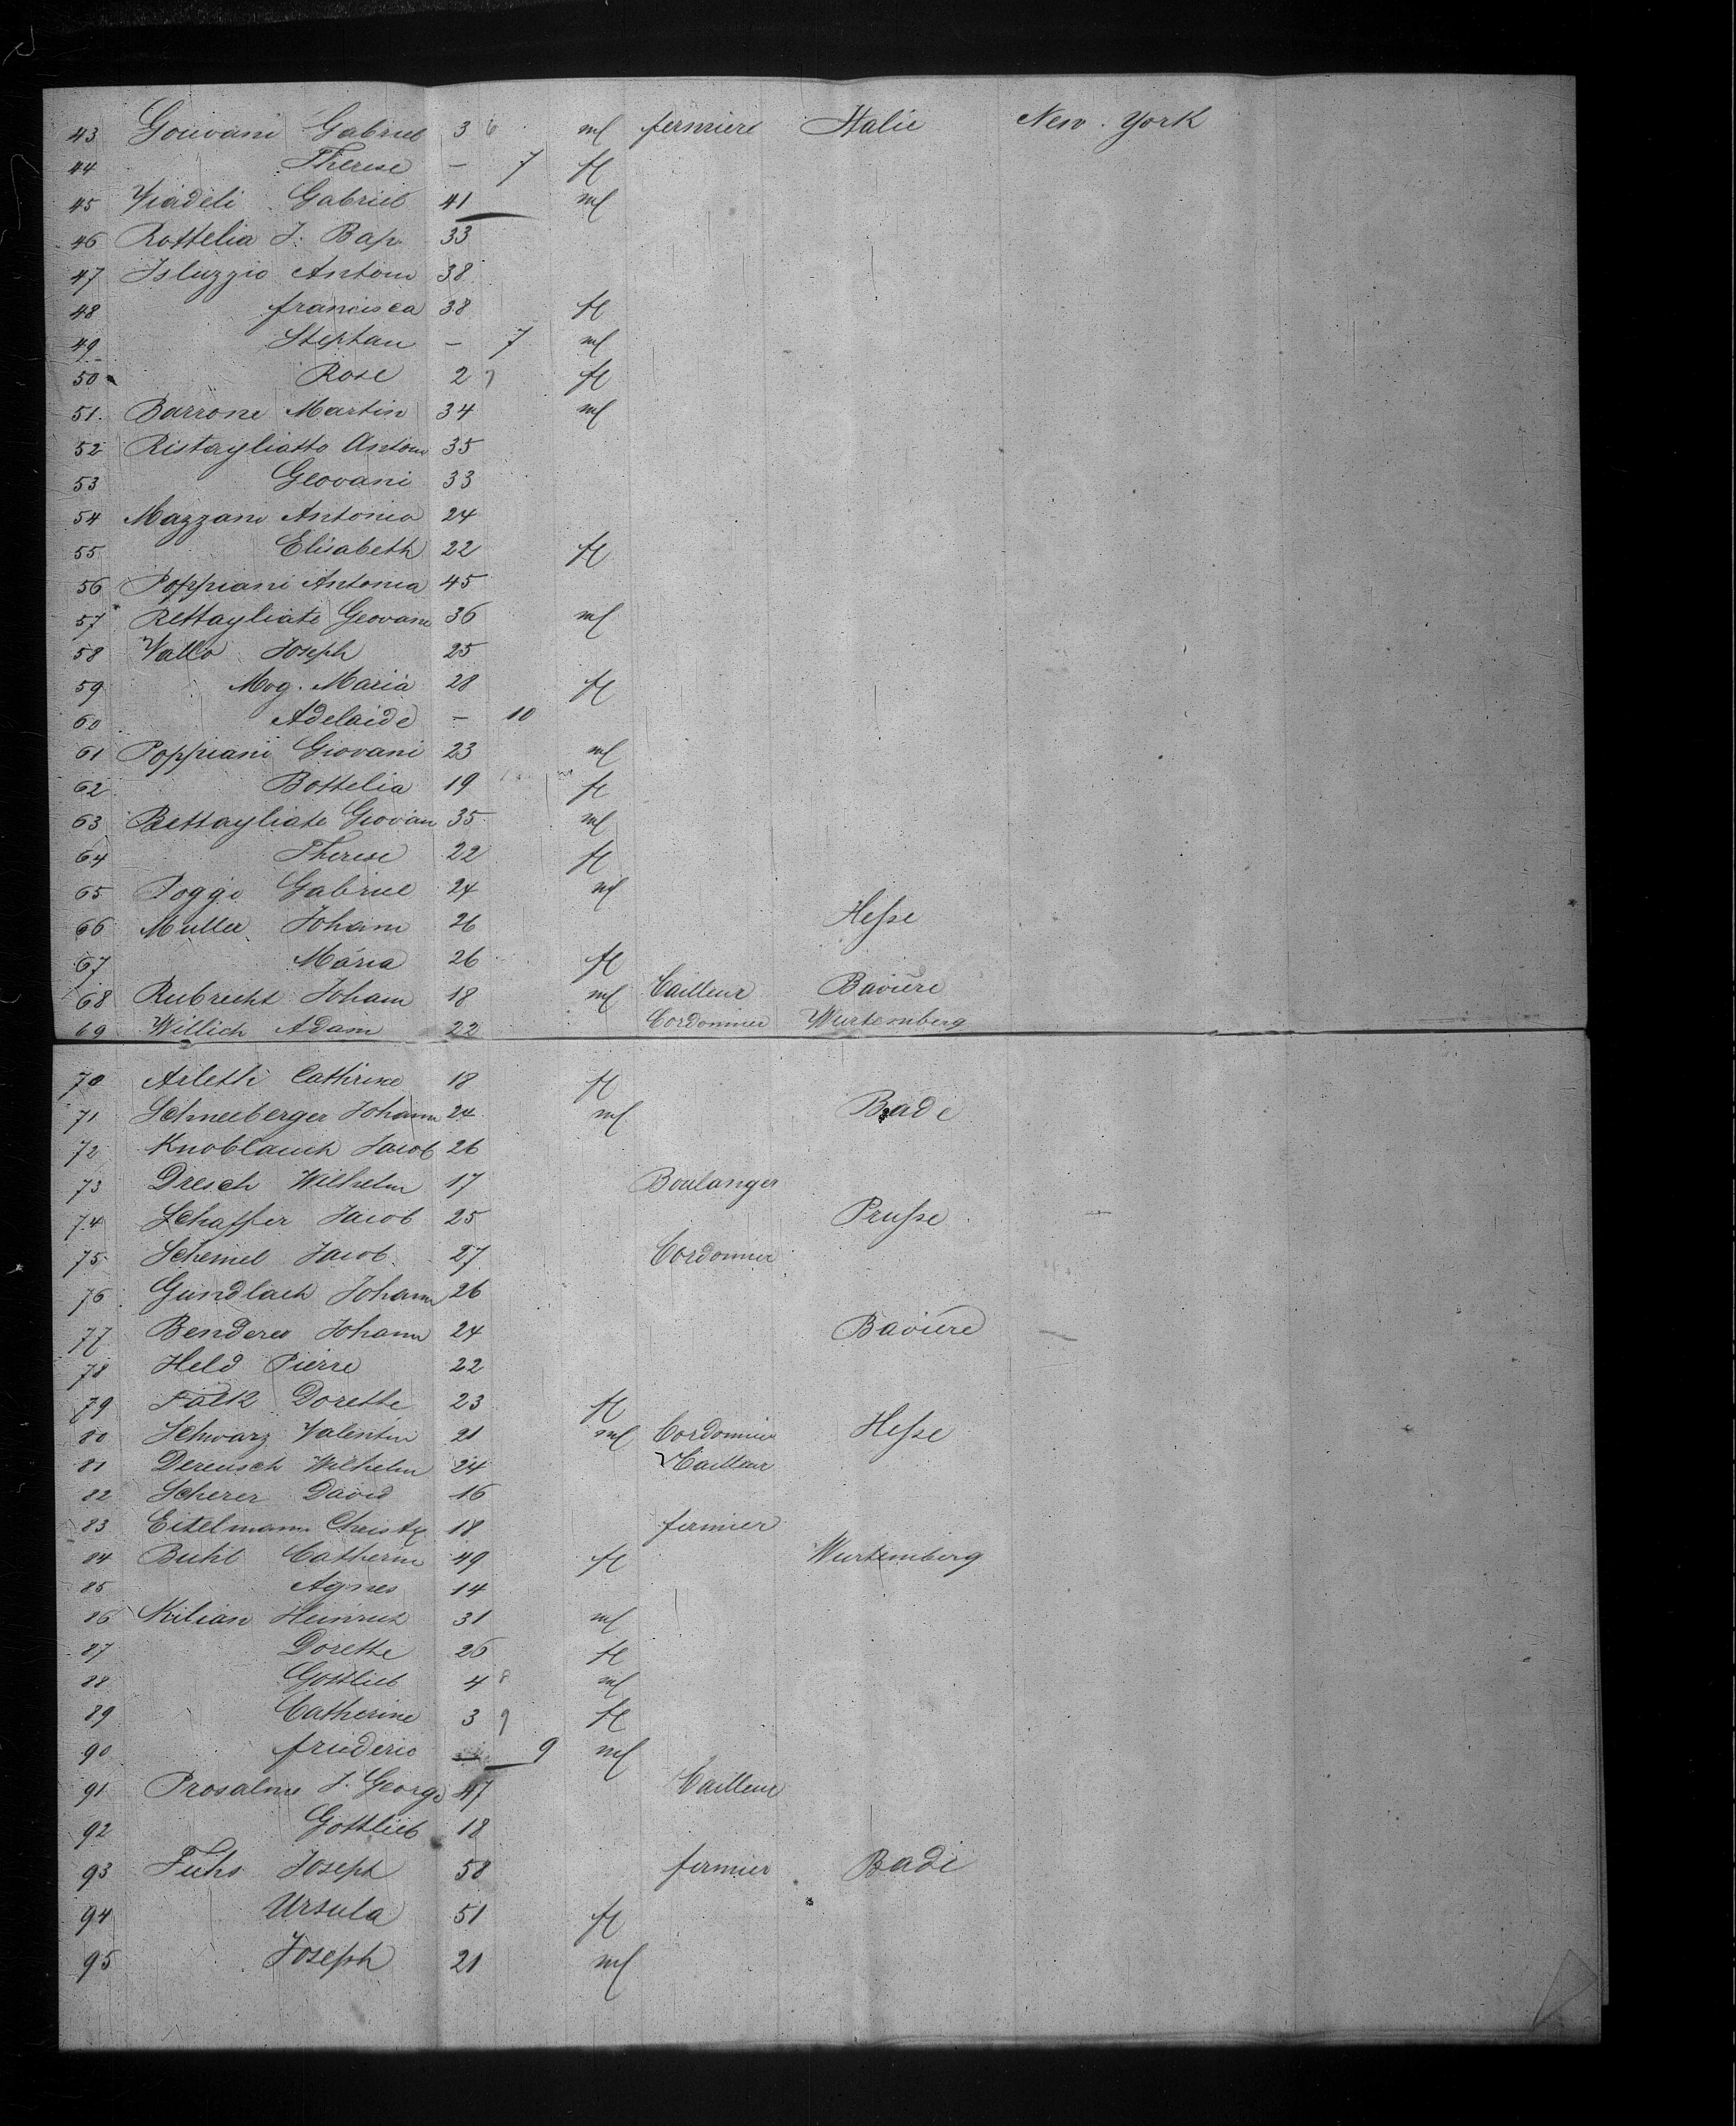 43 Gouvani Gabriel 3 6 ml fermiere Italie New York
44 Therese — 7 fl
45 Viadeli Gabriel 41 ml
46 Rottelia J. Bap. 33
47 Isluzzio Antoni 38
48 francisca 38 fl
49 Stephan — 7 ml
50 Rose 2 7 fl
51 Barrone Martin 34 ml
52 Ristagliatto Antoni 35
53 Geovani 33
54 Mazzani Antonio 24
55 Elisabeth 22 fl
56 Poppiani Antonia 45
57 Rettagliate Geovani 36 ml
58 Vallo Joseph 25
59 Mog. Maria 28 fl
60 Adelaide — 10
61 Poppiani Giovani 23 ml
62 Bottelia 19 fl
63 Rettagliate Giovani 35 ml
64 Therese 22 fl
65 Poggi Gabriel 24 ml
66 Muller Johann 26 Hesse
67 Maria 26 fl
68 Rubrecht Johann 18 ml Tailleur Baviere
69 Willich Adam 22 Cordonnier Wurtemberg
70 Arletti Cathrine 18 fl
71 Schneeberger Johann 24 ml Bade
72 Knoblauch Jacob 26
73 Dresch Wilhelm 17 Boulanger
74 Schaffer Jacob 25 Prusse
75 Schemel Jacob 27 Cordonnier
76 Gundlach Johann 26
77 Benderer Johann 24 Baviere
78 Held Pierre 22
79 Falk Dorette 23 fl
80 Schwarz Valentin 21 ml Cordonnier Hesse
81 Dereusch Wilhelm 24 Tailleur
82 Scherer David 16
83 Eitelmann Christ 18 fermier
84 Buhl Catherin 49 fl Wurtemberg
85 Agnes 14
86 Kilian Heinrich 31 ml
87 Dorette 26 fl
88 Gottlieb 4 8 ml
89 Catherine 3 9 fl
90 friederic — 9 ml
91 Prosalme J. George 47 Tailleur
92 Gottlieb 18
93 Fuhs Joseph 58 fermier Bade
94 Ursula 51 fl
95 Joseph 21 ml